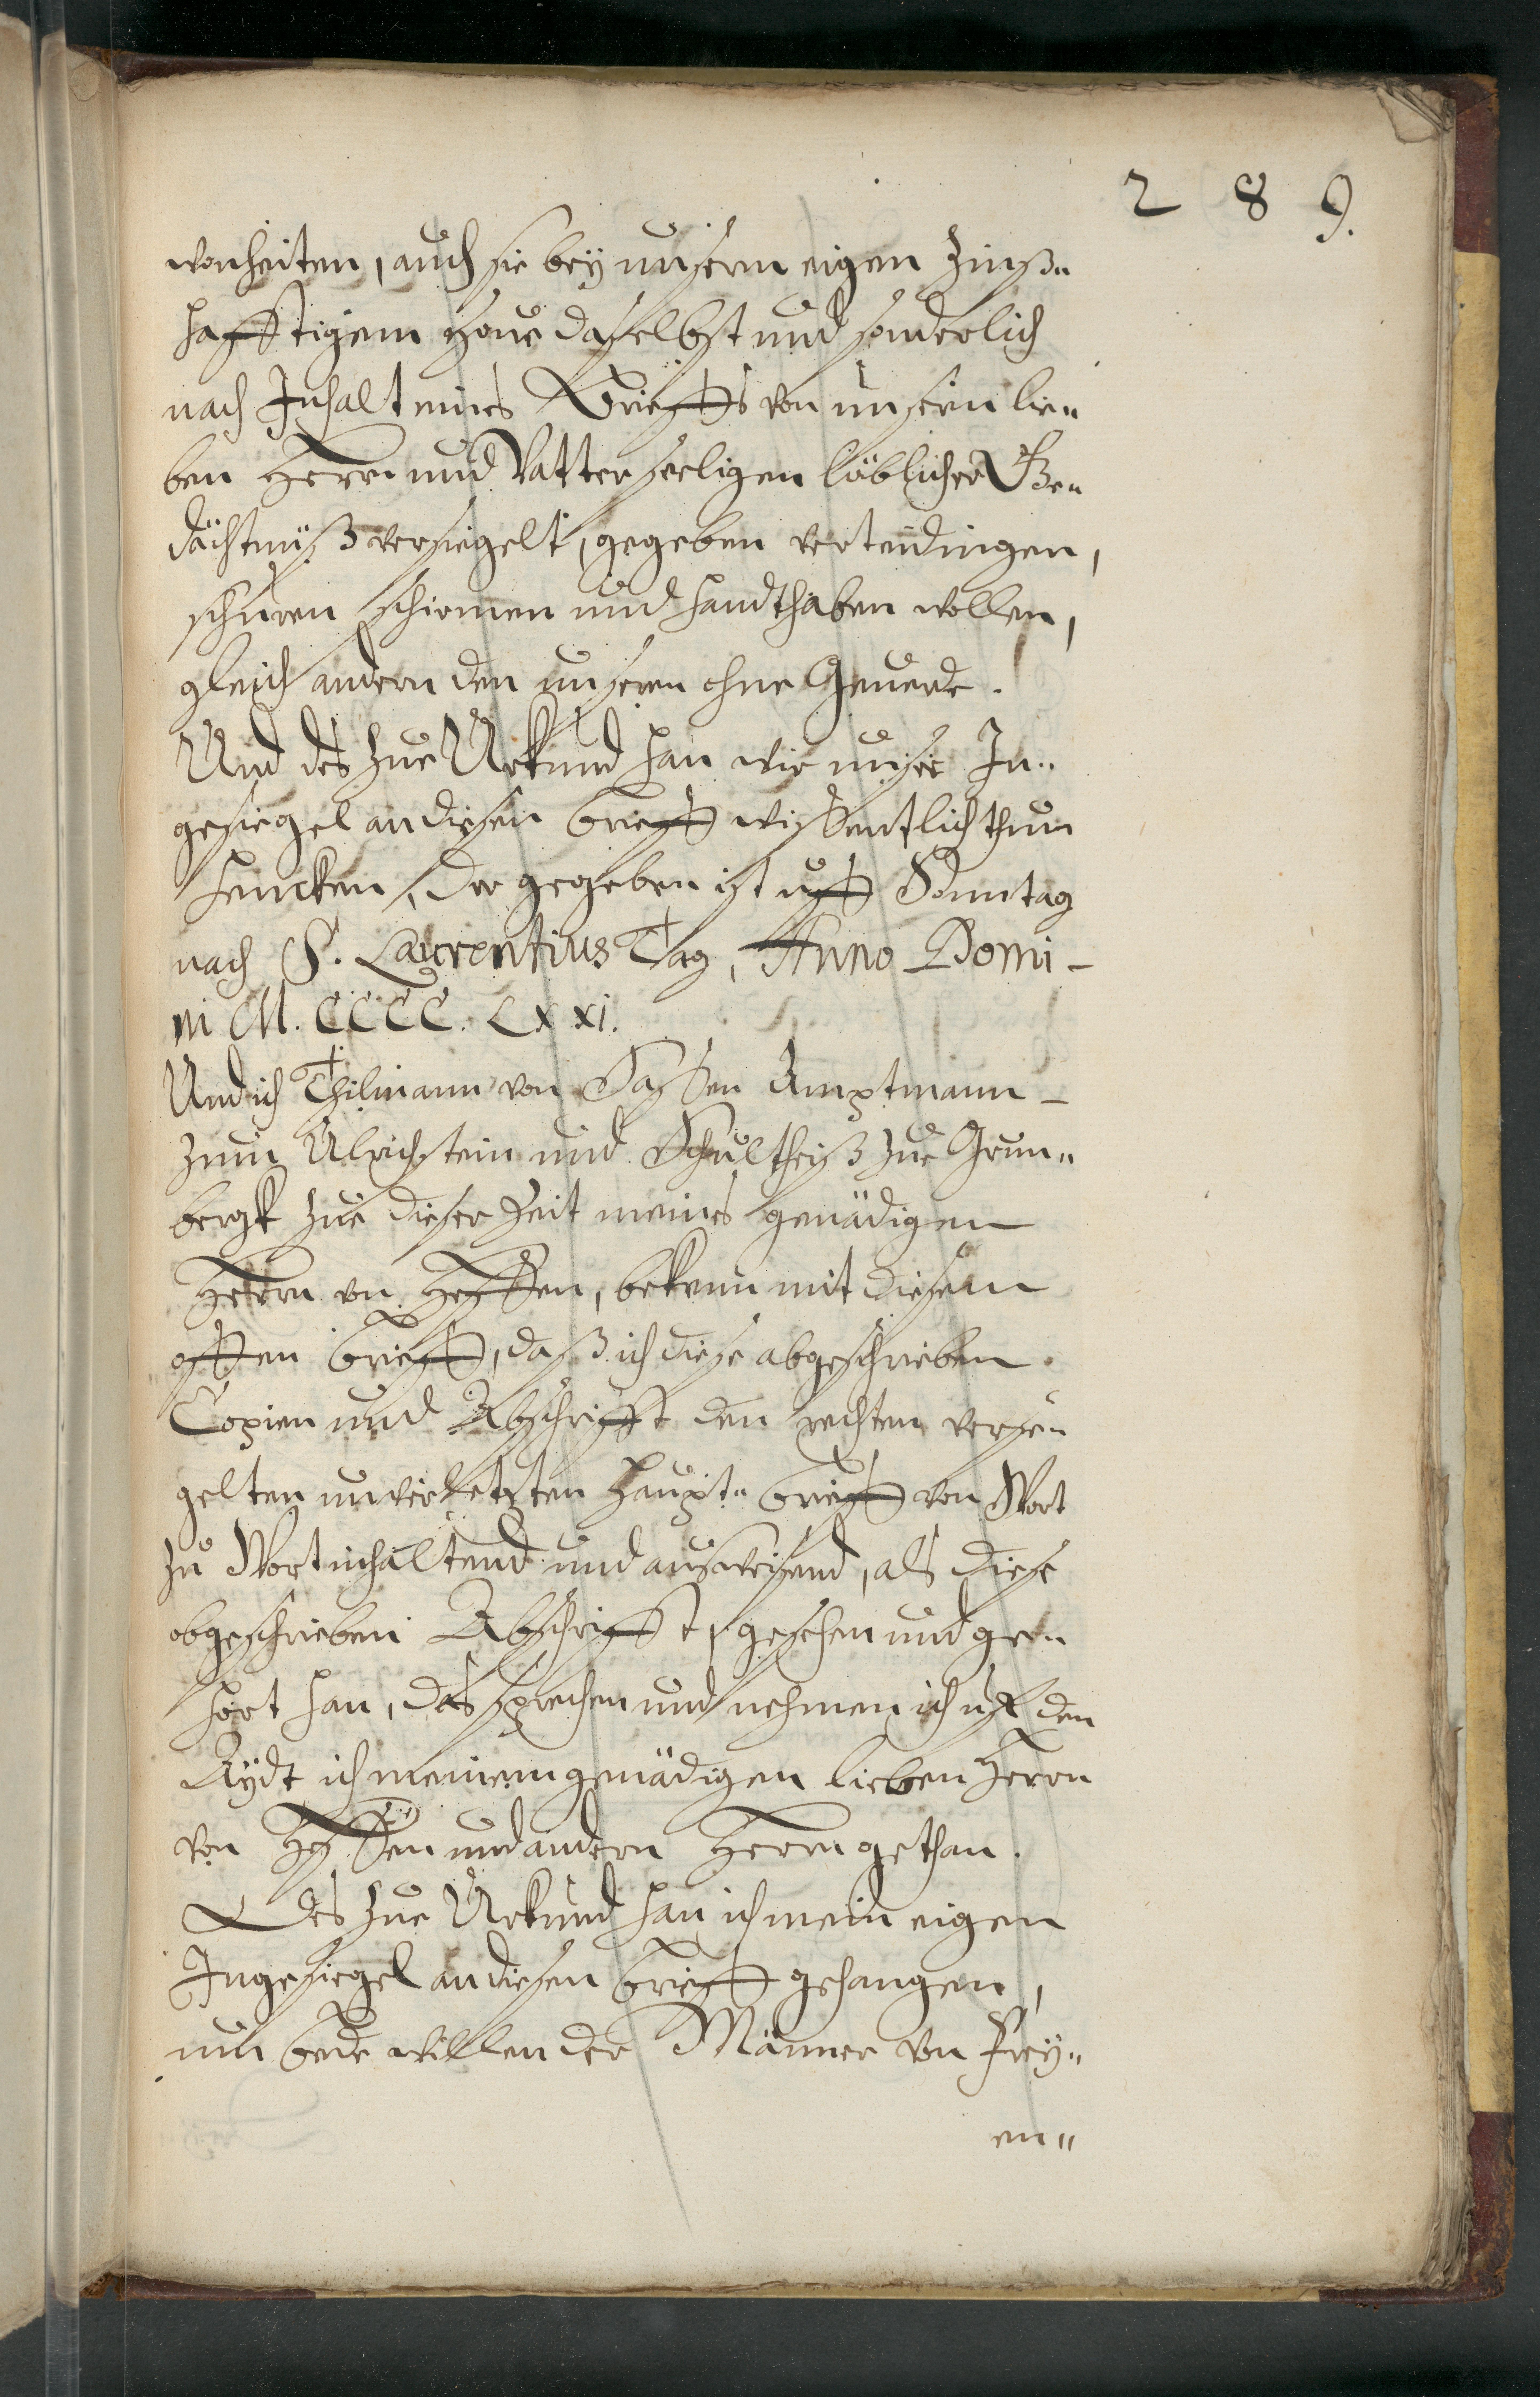 2 8 9.
wonheiten, auch sie bey unserm eigen Zinß„
hafftigem Houe daselbst und sonderlich
nach Inhalt eines Brieffs von unsern lie„
ben Herrn und Vatter seeligen löblicher Ge„
dächtnüß versiegelt, gegeben verteidingen,
schuren schirmen und handthaben wollen,
gleich andern den unseren ohne Geuerde.
Und des zue Urkund han wir unser In„
gesiegel an diesen brieff wissentlich thun
hencken, der gegeben ist uff Sonntag
nach S. Laurentius Tag, Anno Domi-
ni M. CCCC. Lxxi.
Und ich Thilmann von Sassen Amptmann
zum Ulrichstein und Schultheiß zue Grun„
bergk zue dieser Zeit meines genädigen
Herrn von Hessen, bekenn mit diesem
offen brieff, daß ich diese abgeschrieben
Copien und Abschrifft den rechten versie„
gelten unverletzten Haupt„ brieff von Wort
zu Wort inhaltend und ausweisend, als diese
obgeschrieben Abschrifft, gesehen und ge„
hört han, das sprechen und nehmen ich uf den
Aydt ich meinem genädigen lieben Herrn
von Hessen und andern Herrn gethan.
Des zue Urkund han ich mein eigen
Ingesiegel an diesen brieff gehangen,
um bede willen der Männer von Frey„
en„